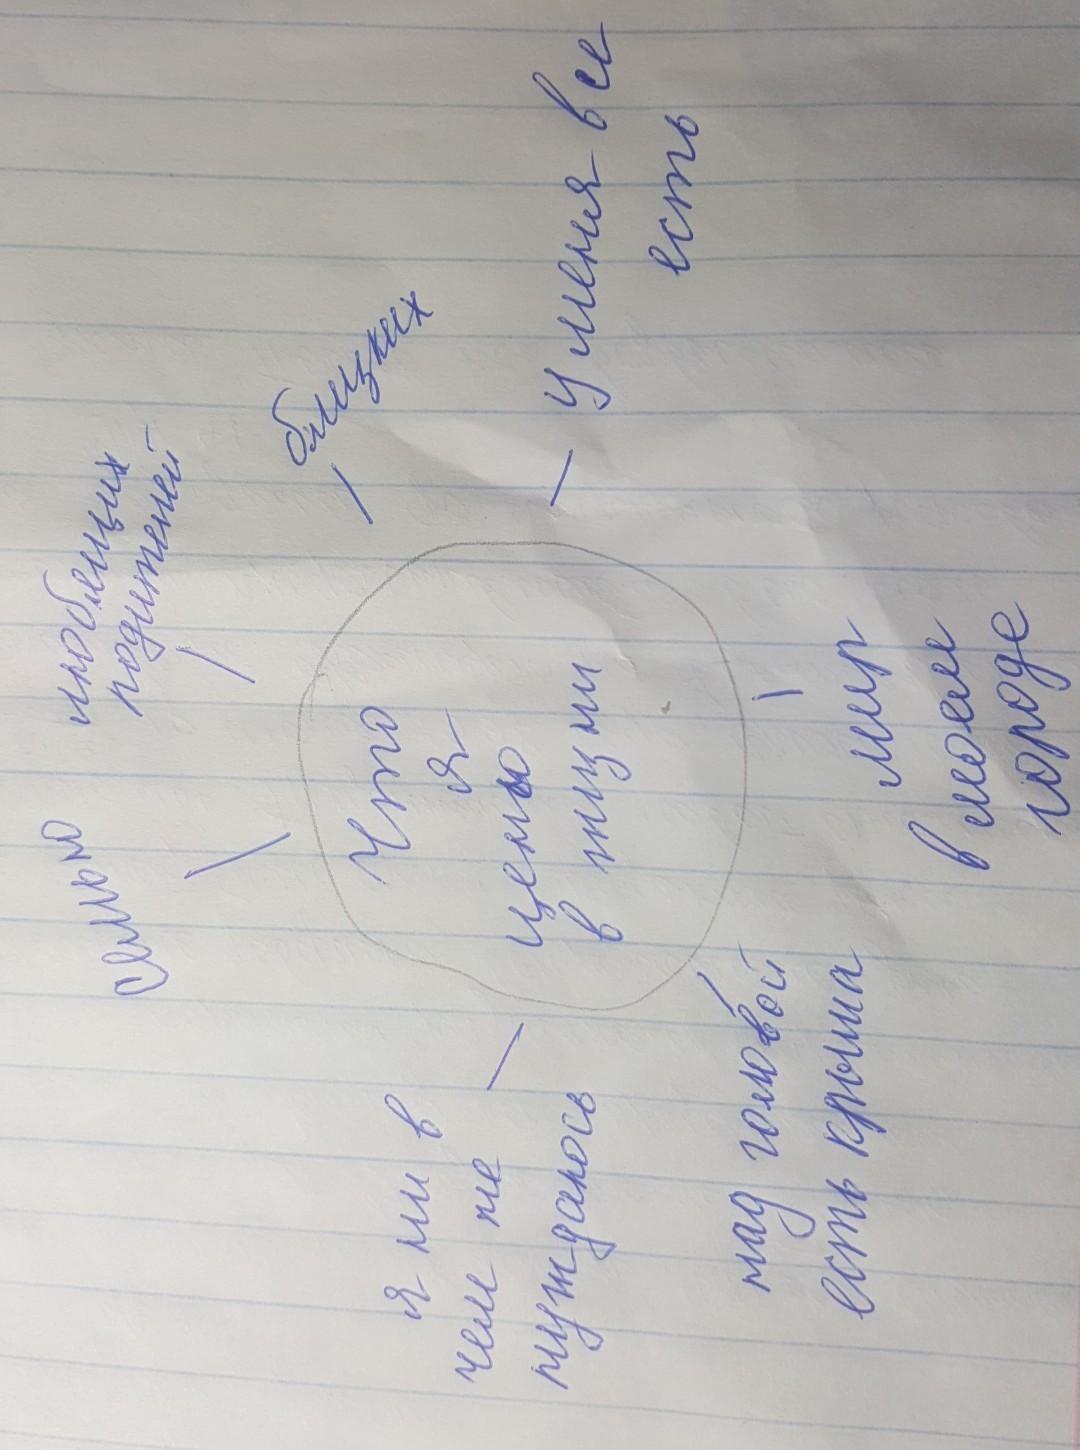 Что
я
ценю
в жизни
семью
любящих
родителей
близких
У меня все
есть
мир
в моем
городе
над головой
есть крыша
я ни в
чем не
нуждаюсь